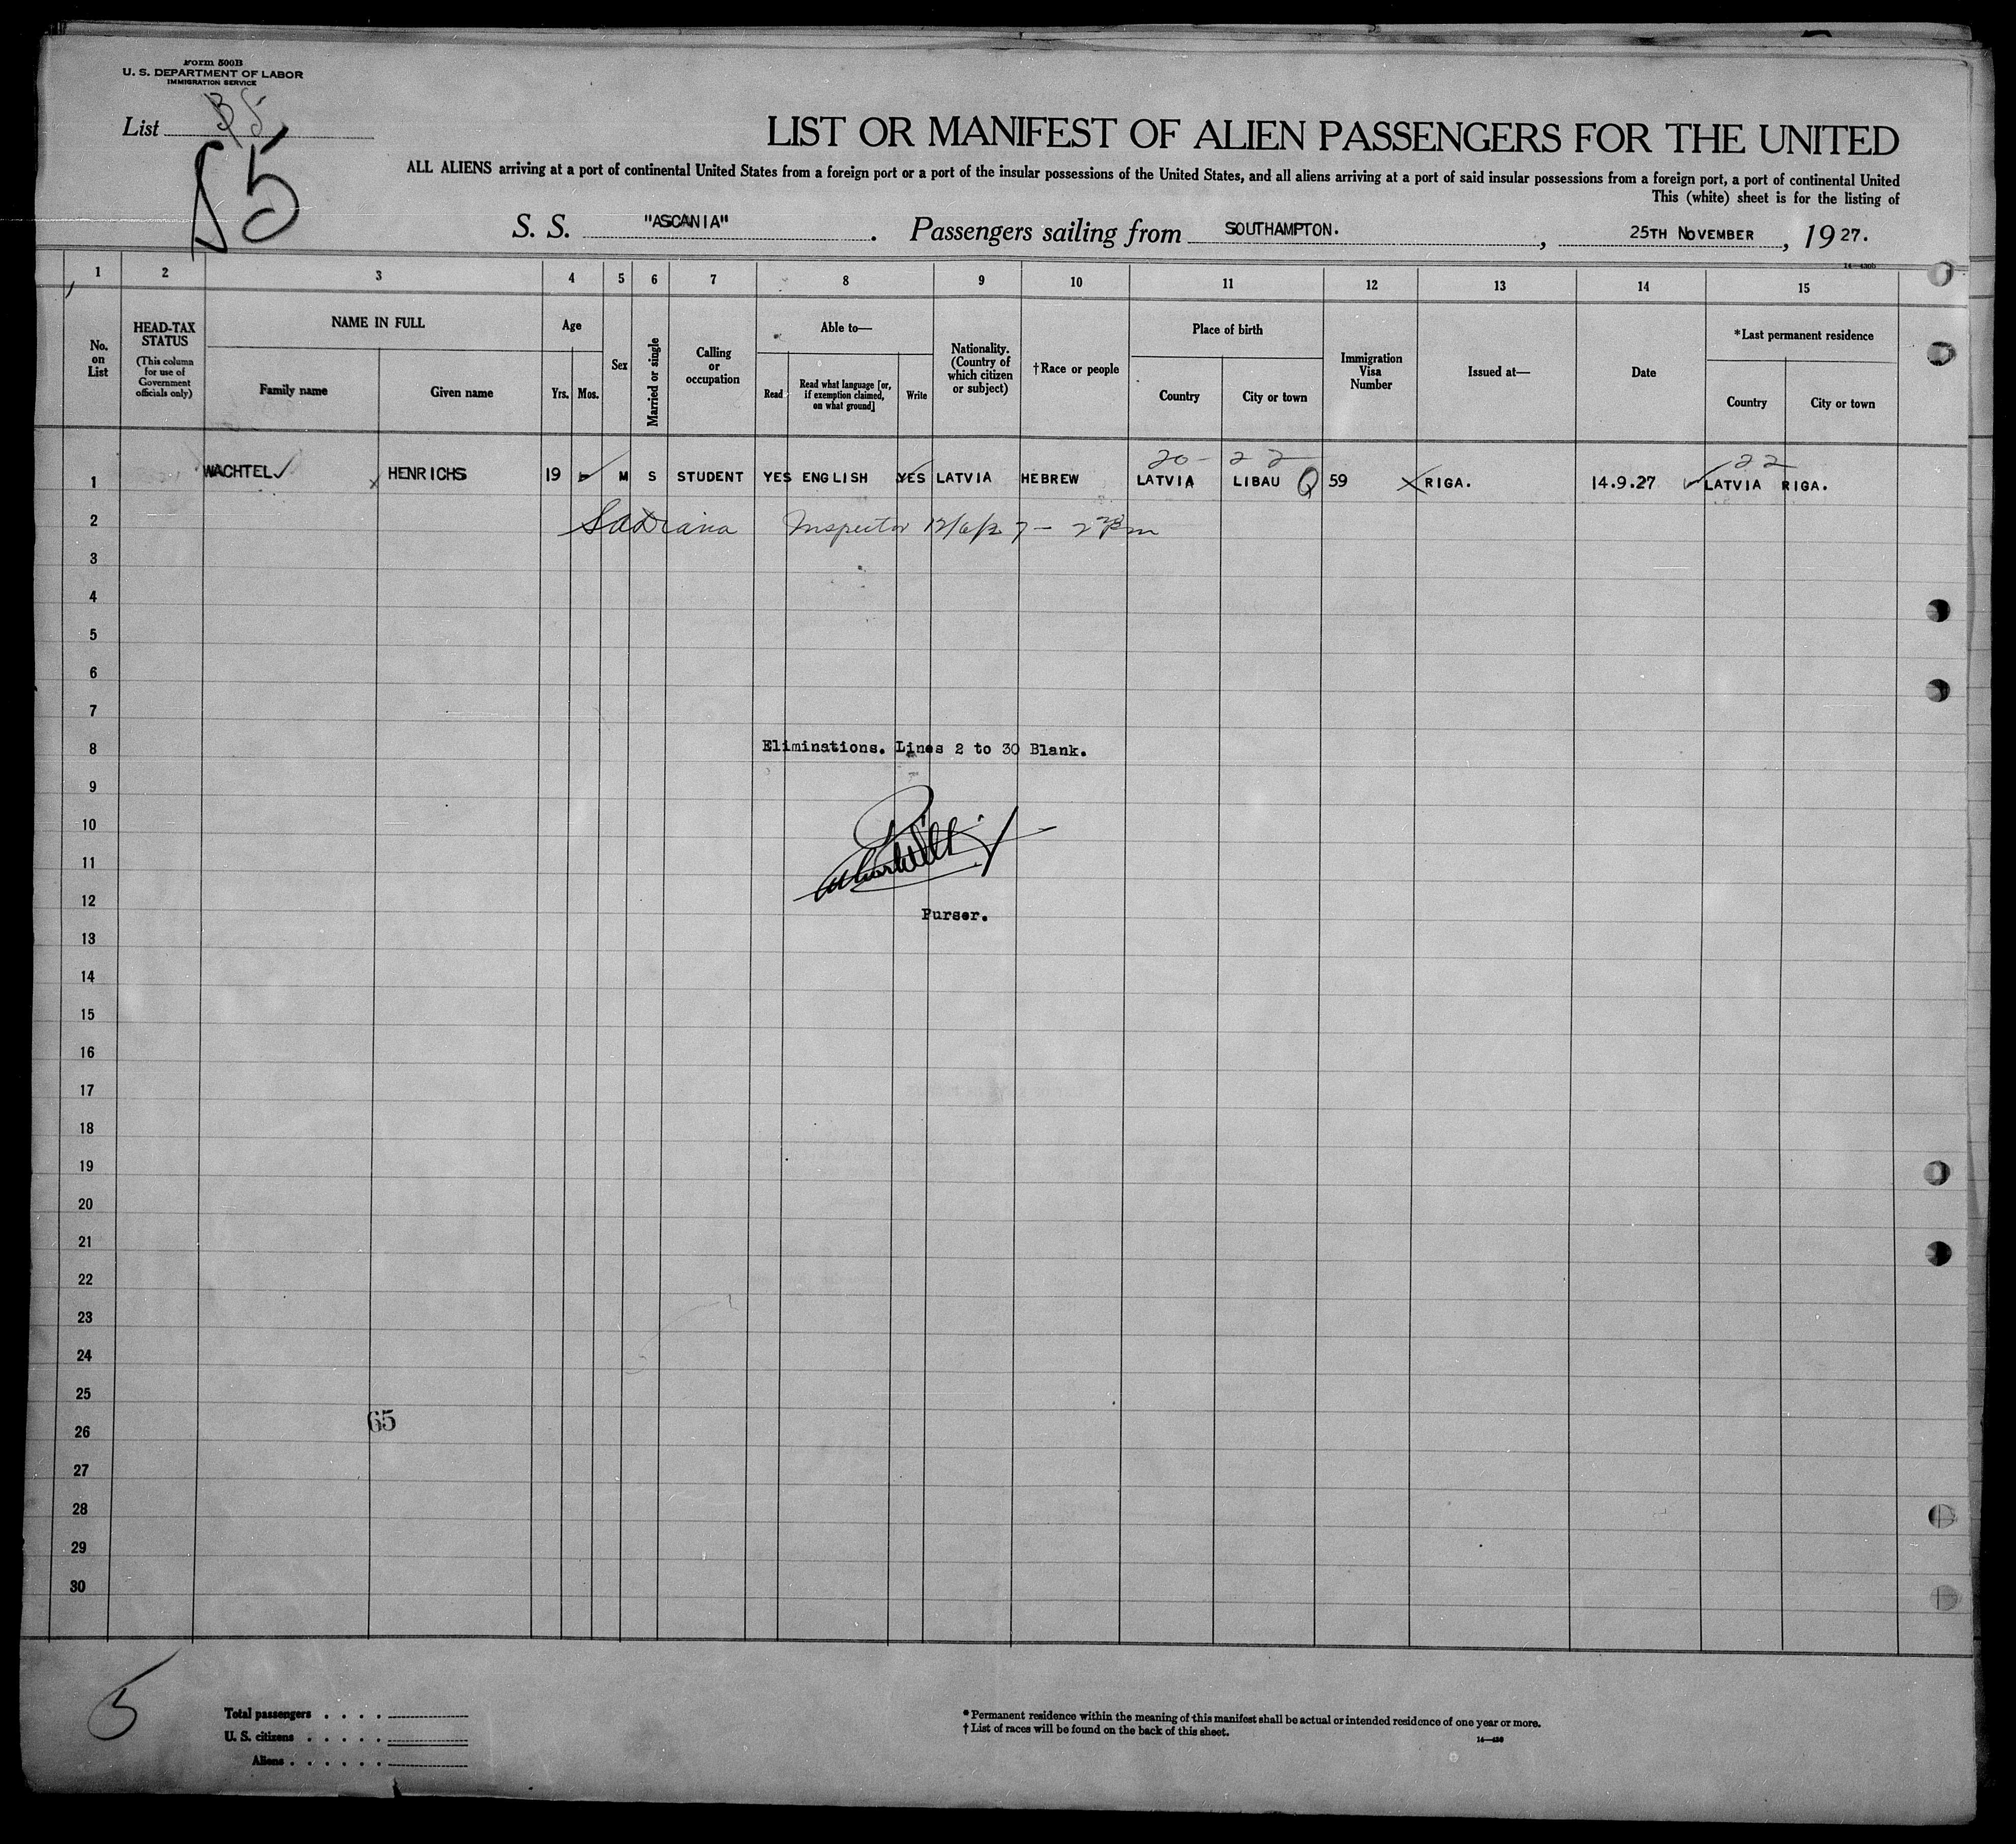 Form 500B
U. S. DEPARTMENT OF LABOR
IMMIGRATION SERVICE
List
55
LIST OR MANIFEST OF ALIEN PASSENGERS FOR THE UNITED
ALL ALIENS arriving at a port of continental United States from a foreign port or a port of the insular possessions of the United States, and all aliens arriving at a port of said insular possessions from a foreign port, a port of continental United
This (white) sheet is for the listing of
S. S. "ASCANIA". Passengers sailing from SOUTHAMPTON., 25TH NOVEMBER, 1927.
14—430b
1 2 3 4 5 6 7 8 9 10 11 12 13 14 15
No. on List
HEAD-TAX STATUS
(This column for use of Government officials only)
NAME IN FULL
Family name
Given name
Age
Yrs. Mos.
Sex
Married or single
Calling or occupation
Able to—
Read
Read what language [or, if exemption claimed, on what ground]
Write
Nationality. (Country of which citizen or subject)
†Race or people
Place of birth
Country
City or town
Immigration Visa Number
Issued at—
Date
*Last permanent residence
Country
City or town
20- 22 22
1 WACHTEL HENRICHS 19 M S STUDENT YES ENGLISH YES LATVIA HEBREW LATVIA LIBAU 59 RIGA. 14.9.27 LATVIA RIGA.
2 Inspector 12/6/27
3
4
5
6
7
8 Eliminations. Lines 2 to 30 Blank.
9
10
11
12
Purser.
13
14
15
16
17
18
19
20
21
22
23
24
25
65
26
27
28
29
30
5
Total passengers
U. S. citizens
Aliens
* Permanent residence within the meaning of this manifest shall be actual or intended residence of one year or more.
† List of races will be found on the back of this sheet.
14—430